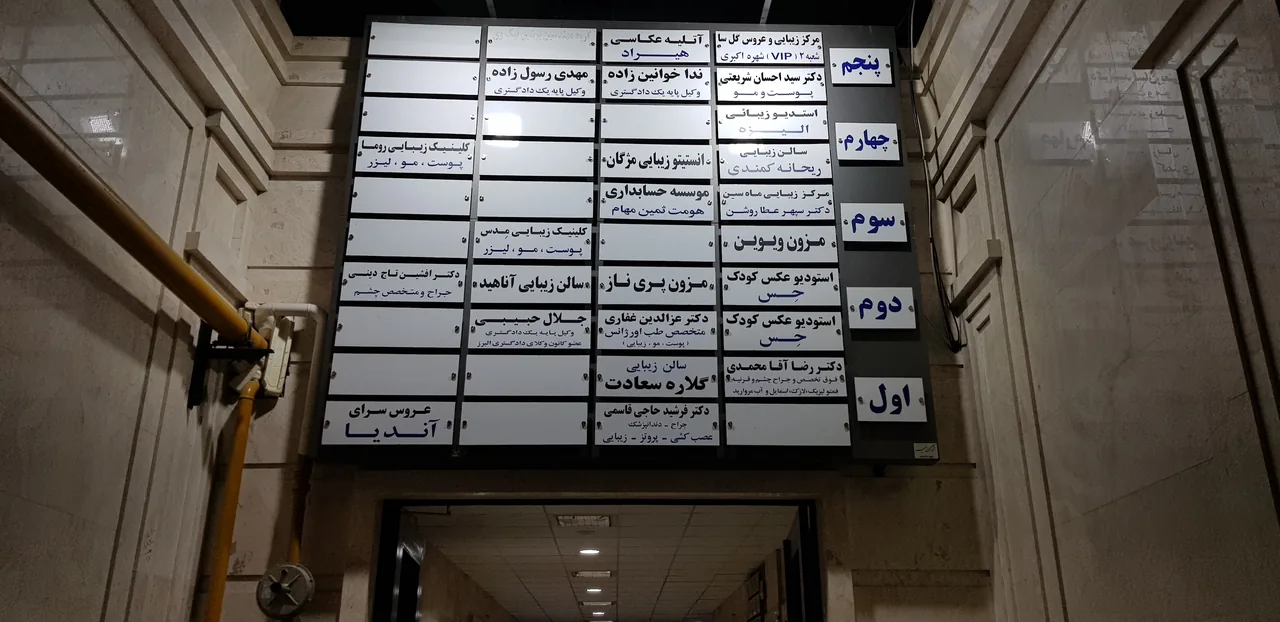 پنجم
مرکز زیبایی و عروس گل سا
شعبه ۲ ( VIP ) شهره اکبری
آتلیه عکاسی
هیراد
دکتر سید احسان شریعتی
پوست و مو
ندا خوانین زاده
وکیل پایه یک دادگستری
مهدی رسول زاده
وکیل پایه یک دادگستری
چهارم
استدیو زیبائی
الیزه
سالن زیبایی
ریحانه کمندی
انستیتو زیبایی مژگان
کلینیک زیبایی روما
پوست ، مو ، لیزر
سوم
مرکز زیبایی ماه سین
دکتر سپهر عطا روشن
موسسه حسابداری
هومت ثمین مهام
مزون ویوین
کلینیک زیبایی مِدس
پوست ، مو ، لیزر
دوم
استودیو عکس کودک
حِس
مزون پری ناز
سالن زیبایی آناهید
دکتر افشین تاج دینی
جراح و متخصص چشم
استودیو عکس کودک
حِس
دکتر عزالدین غفاری
متخصص طب اورژانس
( پوست ، مو ، زیبایی )
جلال حبیبی
وکیل پایه یک دادگستری
عضو کانون وکلای دادگستری البرز
اول
دکتر رضا آقا محمدی
فوق تخصص و جراح چشم و قرنیه
فمتو لیزیک ، لازک ، اسمایل و آب مروارید
سالن زیبایی
گلاره سعادت
دکتر فرشید حاجی قاسمی
جراح - دندانپزشک
عصب کشی - پروتز - زیبایی
عروس سرای
آندیا